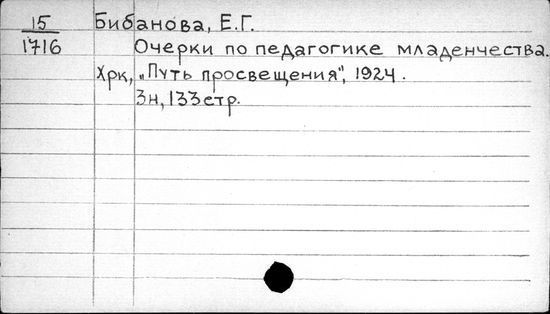 15 Бибанова, Е.Г.
1716 Очерки по педагогике младенчества.
Хрк, „Путь просвещения", 1924.
3н, 133стр.